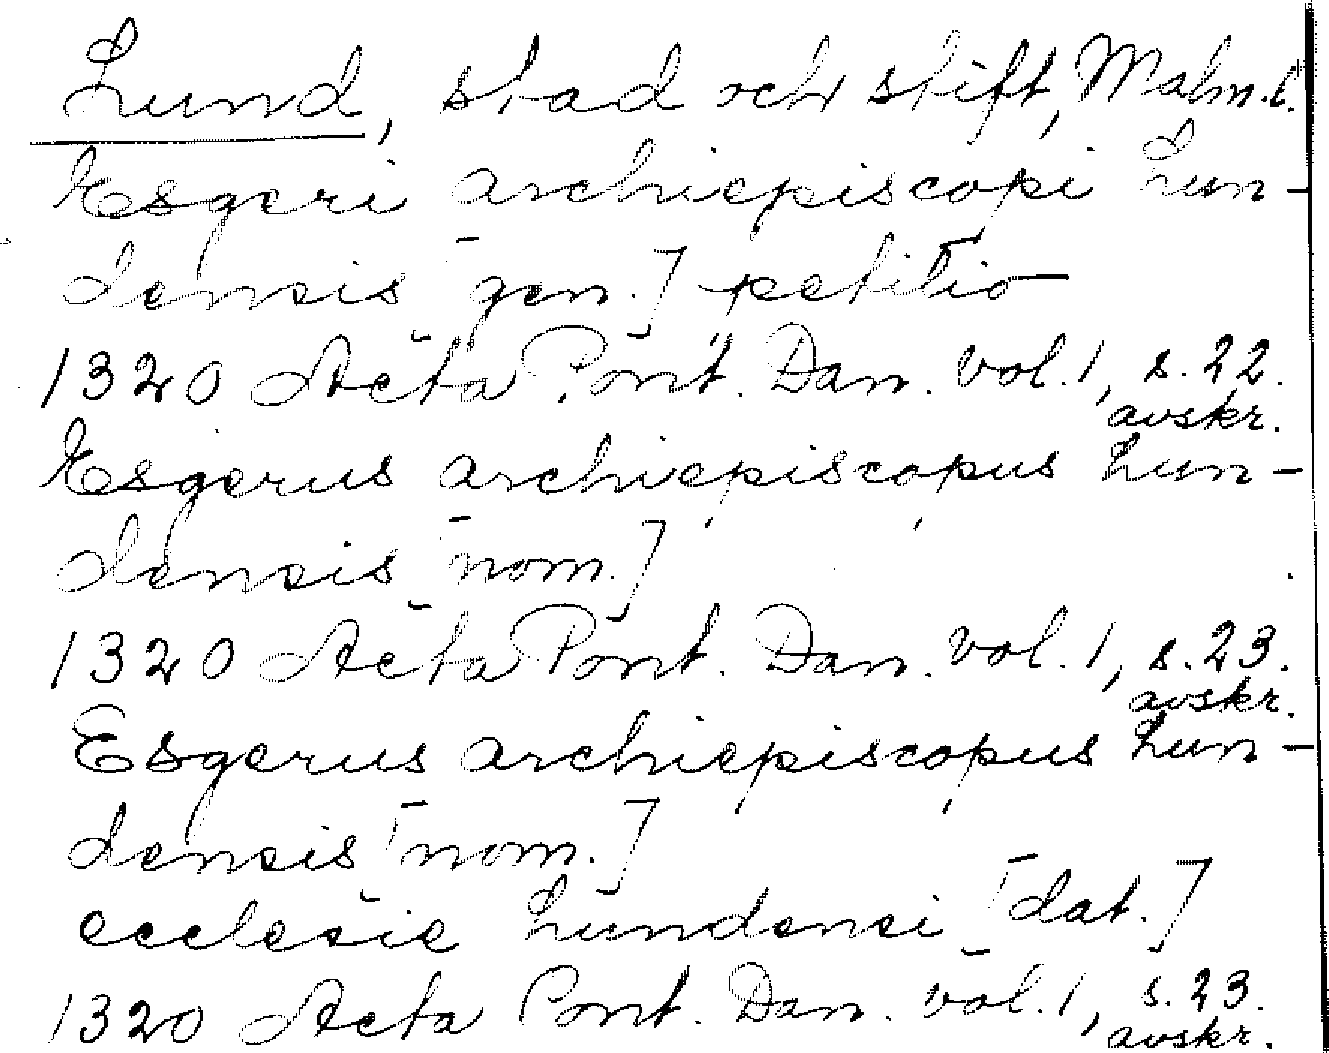 Lund, stad och stift, Malm.l.
Esgeri archiepiscopi Lun-
densis [gen.] petitio
1320 Acta Pont. Dan. vol. 1, s. 22.
avskr.
Esgerus archiepiscopus Lun-
densis [nom.]
1320 Acta Pont. Dan. vol. 1, s. 23.
avskr.
Esgerus archiepiscopus Lun-
densis [nom.]
ecclesie Lundensi [dat.]
1320 Acta Pont. Dan. vol. 1, s. 23.
avskr.